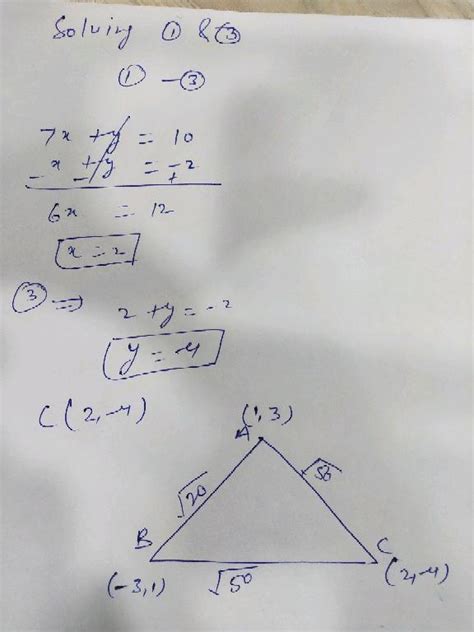 Solving ① & ③
① - ③
7x + y = 10
- x + y = -2
- +
6x = 12
x = 2
③ ⇒ 2 + y = -2
y = -4
C(2, -4)
(1, 3)
A
√20
√50
B
C
(-3, 1)
√50
(2, -4)